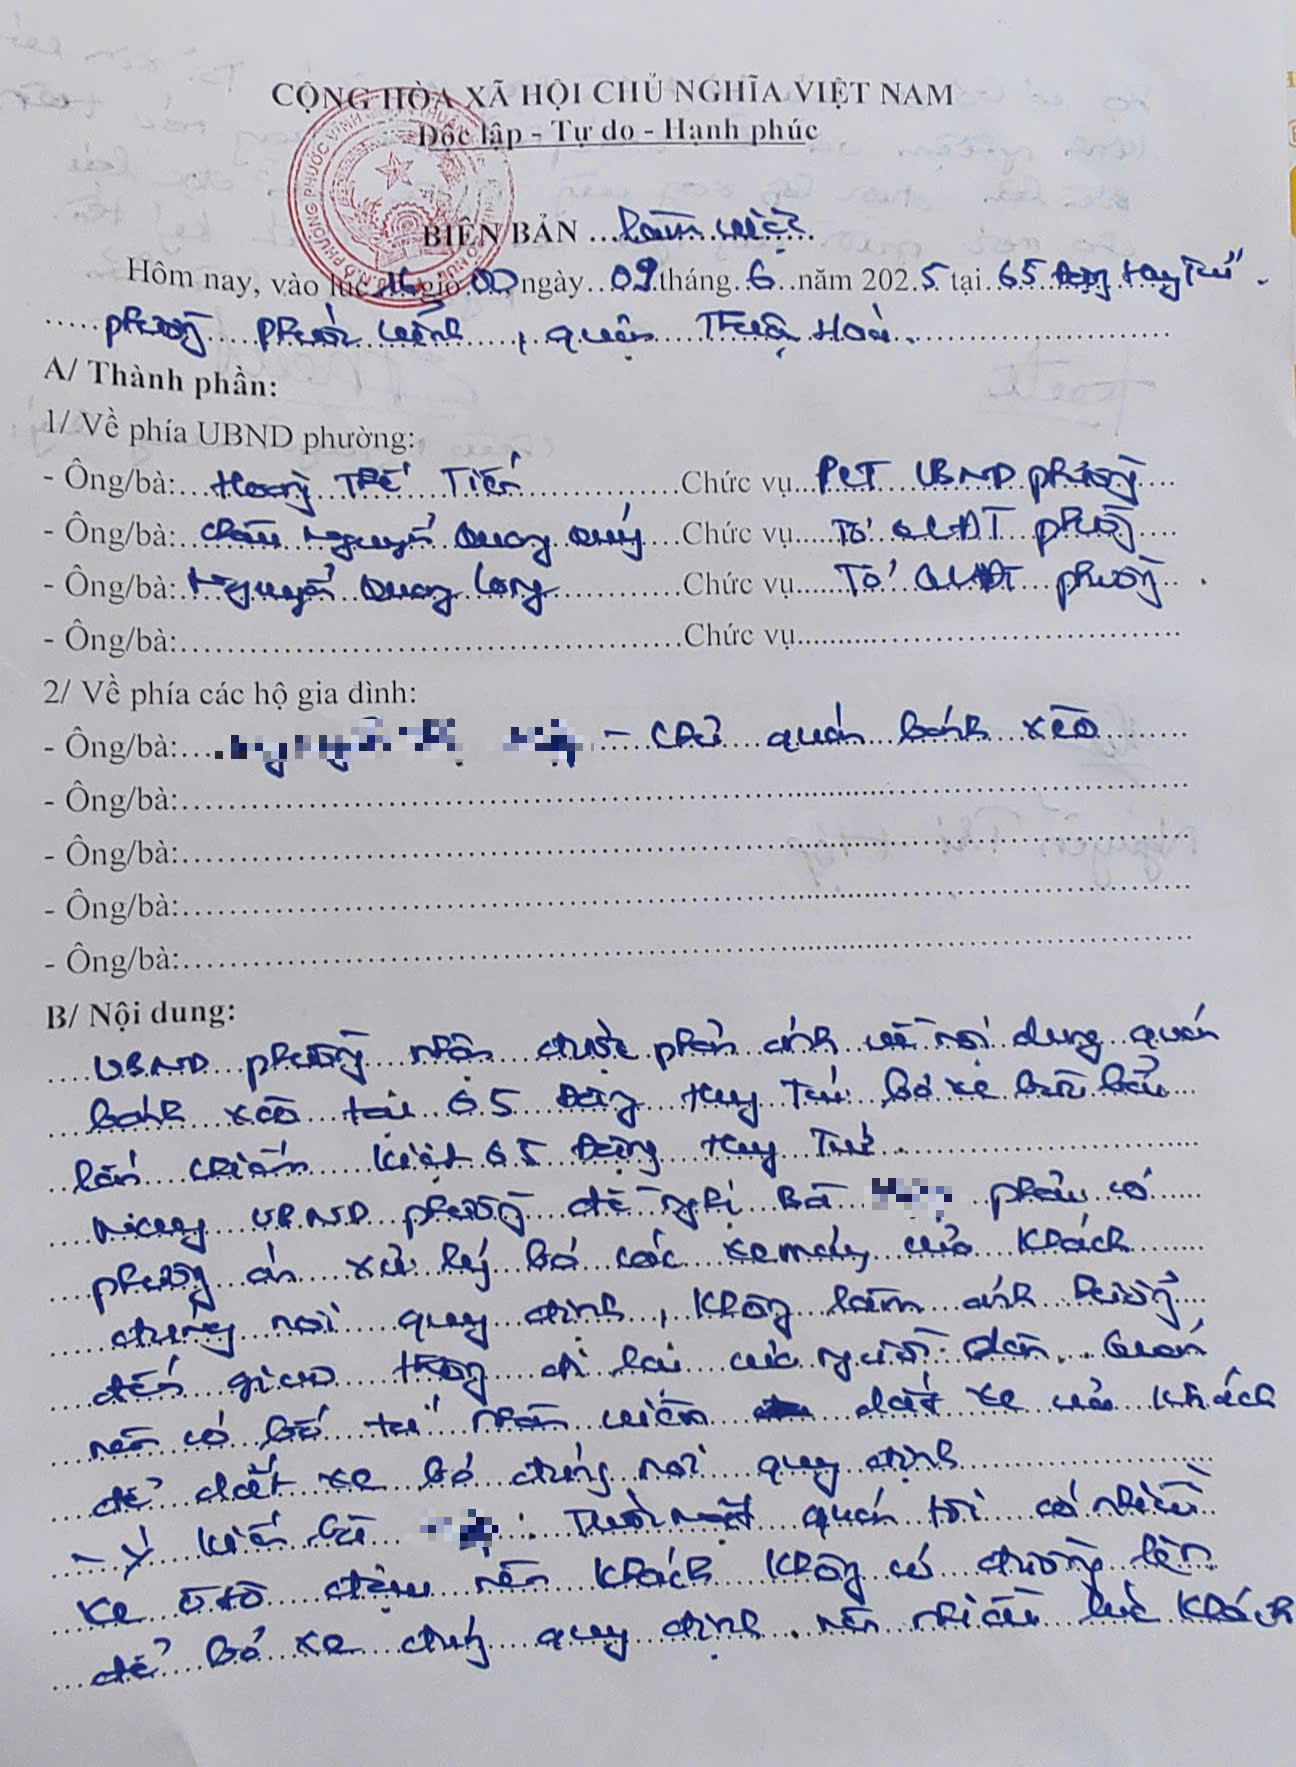 CỘNG HÒA XÃ HỘI CHỦ NGHĨA VIỆT NAM
Độc lập - Tự do - Hạnh phúc
BIÊN BẢN ...làm việc
Hôm nay, vào lúc 16 giờ 00 ngày 09 tháng 6 năm 2025 tại 65 Đặng Huy Trứ
phường Phước Vĩnh, quận Thuận Hoá.
A/ Thành phần:
1/ Về phía UBND phường:
- Ông/bà: Hoàng Thế Tiến Chức vụ PCT UBND phường
- Ông/bà: Châu Nguyễn Quang Quý Chức vụ Tổ QLĐT phường
- Ông/bà: Nguyễn Quang Long Chức vụ Tổ QLĐT phường
- Ông/bà: Chức vụ
2/ Về phía các hộ gia đình:
- Ông/bà: - Chủ quán bánh xèo
- Ông/bà:
- Ông/bà:
- Ông/bà:
- Ông/bà:
B/ Nội dung:
UBND phường nhận được phản ánh về nội dung quán
bánh xèo tại 65 Đặng Huy Trứ bỏ xe bừa bãi
lấn chiếm kiệt 65 Đặng Huy Trứ.
UBND phường đề nghị Bà phải có
phương án xử lý bỏ các xe máy của khách
đúng nơi quy định, không làm ảnh hưởng
đến giao thông đi lại của người dân. Quán
nên có bố trí nhân viên dắt xe của khách
để dắt xe bỏ đúng nơi quy định
- Ý kiến bà : Trước mặt quán tôi có nhiều
xe ôtô đậu nên khách không có đường lên
để bỏ xe đúng quy định. nên nhiều lúc khách